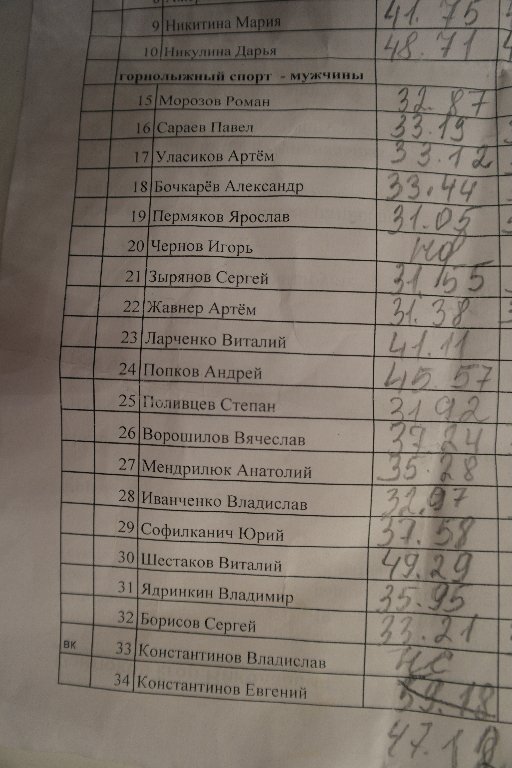 9 Никитина Мария 41.75
10 Никулина Дарья 48.71
горнолыжный спорт - мужчины
15 Морозов Роман 32.87
16 Сараев Павел 33.19
17 Уласиков Артём 33.12
18 Бочкарёв Александр 33.44
19 Пермяков Ярослав 31.05
20 Чернов Игорь
21 Зырянов Сергей 31.55
22 Жавнер Артём 31.38
23 Ларченко Виталий 41.11
24 Попков Андрей 45.57
25 Поливцев Степан 31.92
26 Ворошилов Вячеслав 37.24
27 Мендрилюк Анатолий 35.28
28 Иванченко Владислав 32.97
29 Софилканич Юрий 37.58
30 Шестаков Виталий 49.29
31 Ядринкин Владимир 35.95
32 Борисов Сергей 33.21
вк 33 Константинов Владислав нс
34 Константинов Евгений